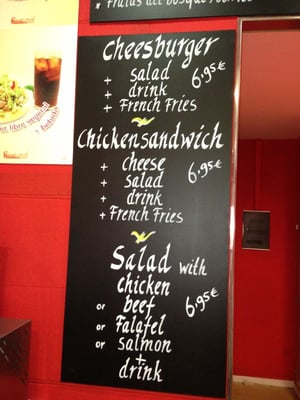 Cheesburger
+ salad
+ drink 6.95€
+ French Fries
Chickensandwich
+ cheese 6.95€
+ salad
+ drink
+ French Fries
Salad with
chicken
or beef 6.95€
or Falafel
or salmon
+
drink